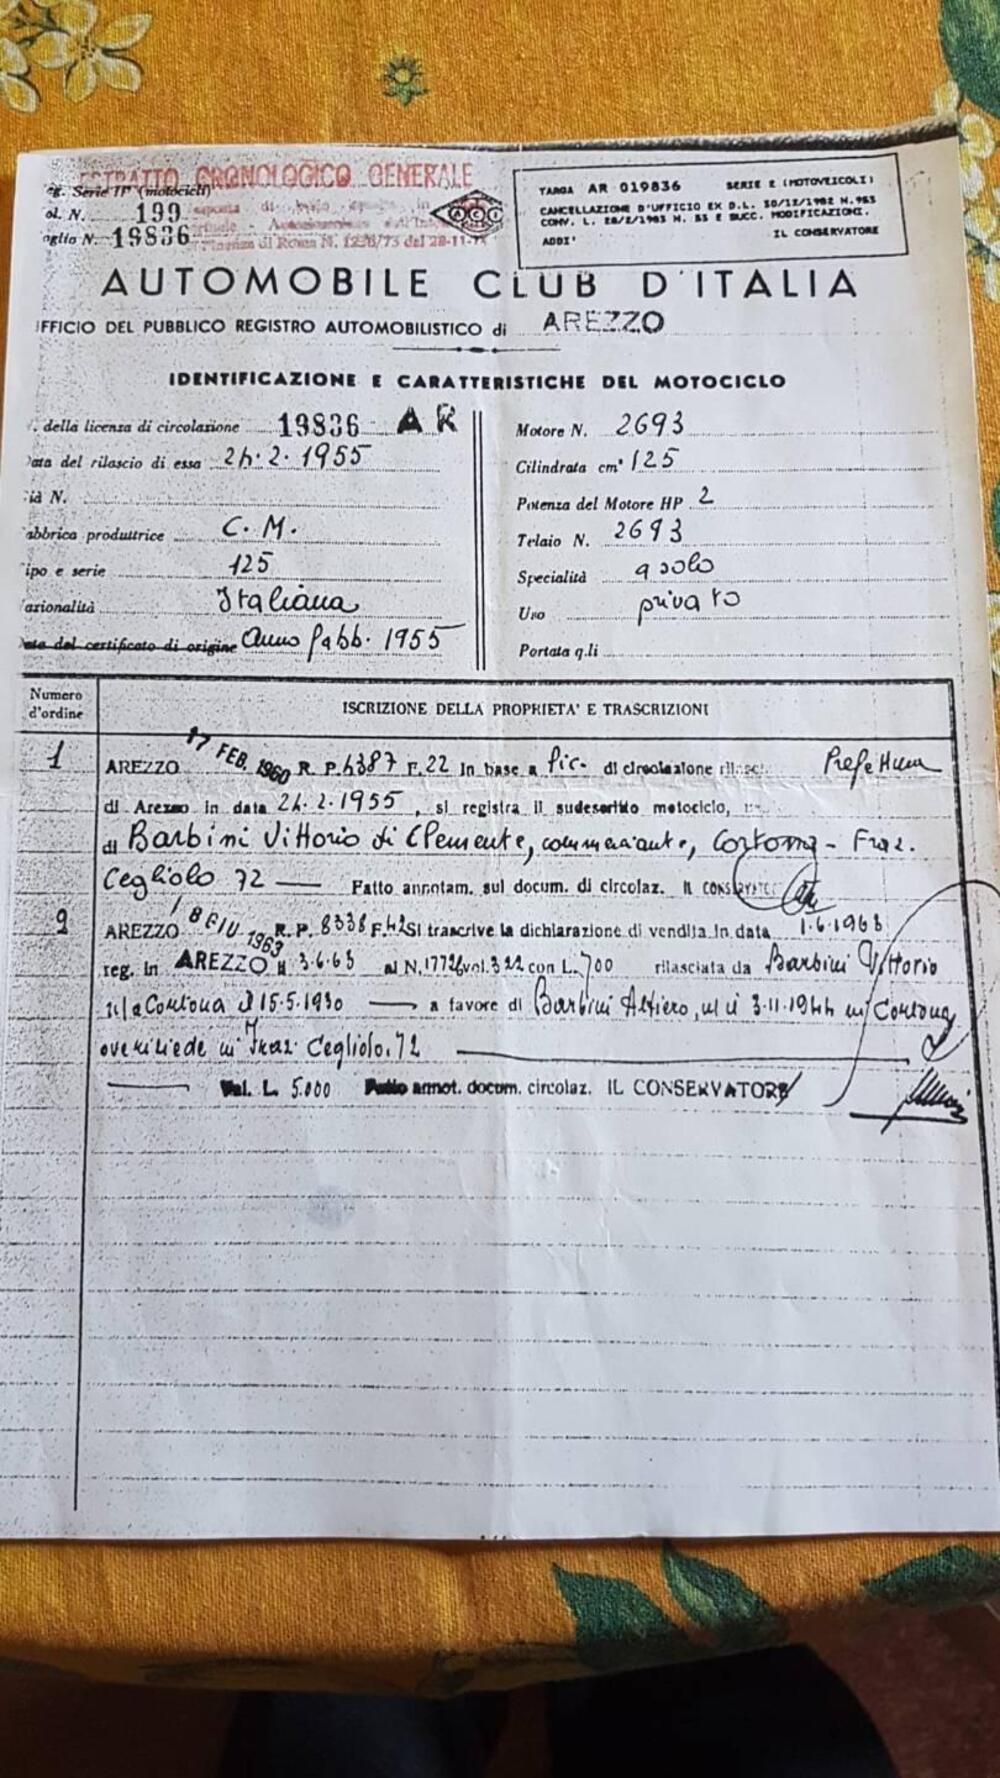 ESTRATTO CRONOLOGICO GENERALE
Serie IIª (motocicli)
ol. N. 199
oglio N. 19836
di Roma N. 1226/73 del 28-11-73
ACI
TARGA AR 019836 SERIE 2 (MOTOVEICOLI)
CANCELLAZIONE D'UFFICIO EX D.L. 30/12/1982 N. 953
CONV. L. 28/2/1983 N. 53 E SUCC. MODIFICAZIONI.
ADDI' IL CONSERVATORE
AUTOMOBILE CLUB D'ITALIA
UFFICIO DEL PUBBLICO REGISTRO AUTOMOBILISTICO di AREZZO
IDENTIFICAZIONE E CARATTERISTICHE DEL MOTOCICLO
. della licenza di circolazione 19836 AR
Data del rilascio di essa 24.2.1955
ià N.
abbrica produttrice C. M.
ipo e serie 125
azionalità Italiana
Data del certificato di origine Anno fabb. 1955
Motore N. 2693
Cilindrata cm³ 125
Potenza del Motore HP 2
Telaio N. 2693
Specialità a solo
Uso privato
Portata q.li
Numero d'ordine
ISCRIZIONE DELLA PROPRIETA' E TRASCRIZIONI
1 AREZZO 17 FEB. 1960 R. P. 4387 F. 22 In base a lic. di circolazione rilasc. Prefettura
di Arezzo in data 24.2.1955, si registra il sudescritto motociclo,
di Barbini Vittorio di Clemente, commerciante, Cortona - Fraz.
Cegliolo 72 — Fatto annotam. sul docum. di circolaz. IL CONSERVATORE
2 AREZZO 18 GIU. 1963 R. P. 8338 F. 42 Si trascrive la dichiarazione di vendita in data 1.6.1963
reg. in AREZZO il 3.6.63 al N. 17726 vol. 322 con L. 700 rilasciata da Barbini Vittorio
n/a Cortona il 15.5.1930 — a favore di Barbini Alfiero, n. il 3.11.1944 in Cortona
ove risiede in Fraz. Cegliolo. 72
Val. L. 5.000 Fatto annot. docum. circolaz. IL CONSERVATORE